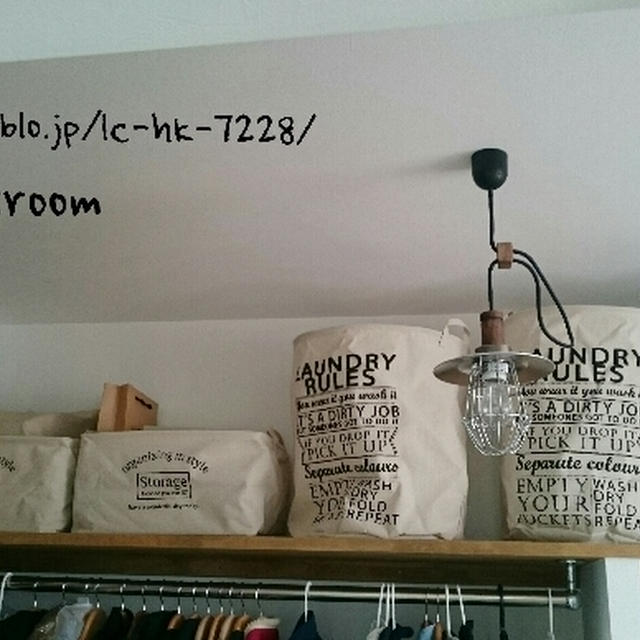 blo.jp/lc-hk-7228/
room
style
organizing in style
Storage
LAUNDRY
RULES
You wear it you wash it
IT'S A DIRTY JOB
SOMEONES GOT TO DO IT
IF YOU DROP IT
PICK IT UP
Separate colours
EMPTY WASH
YOUR DRY
FOLD
REPEAT
LAUNDRY
RULES
You wear it you wash it
IT'S A DIRTY JOB
SOMEONES GOT TO DO IT
IF YOU DROP IT
PICK IT UP
Separate colours
EMPTY WASH
YOUR DRY
FOLD
POCKETS REPEAT